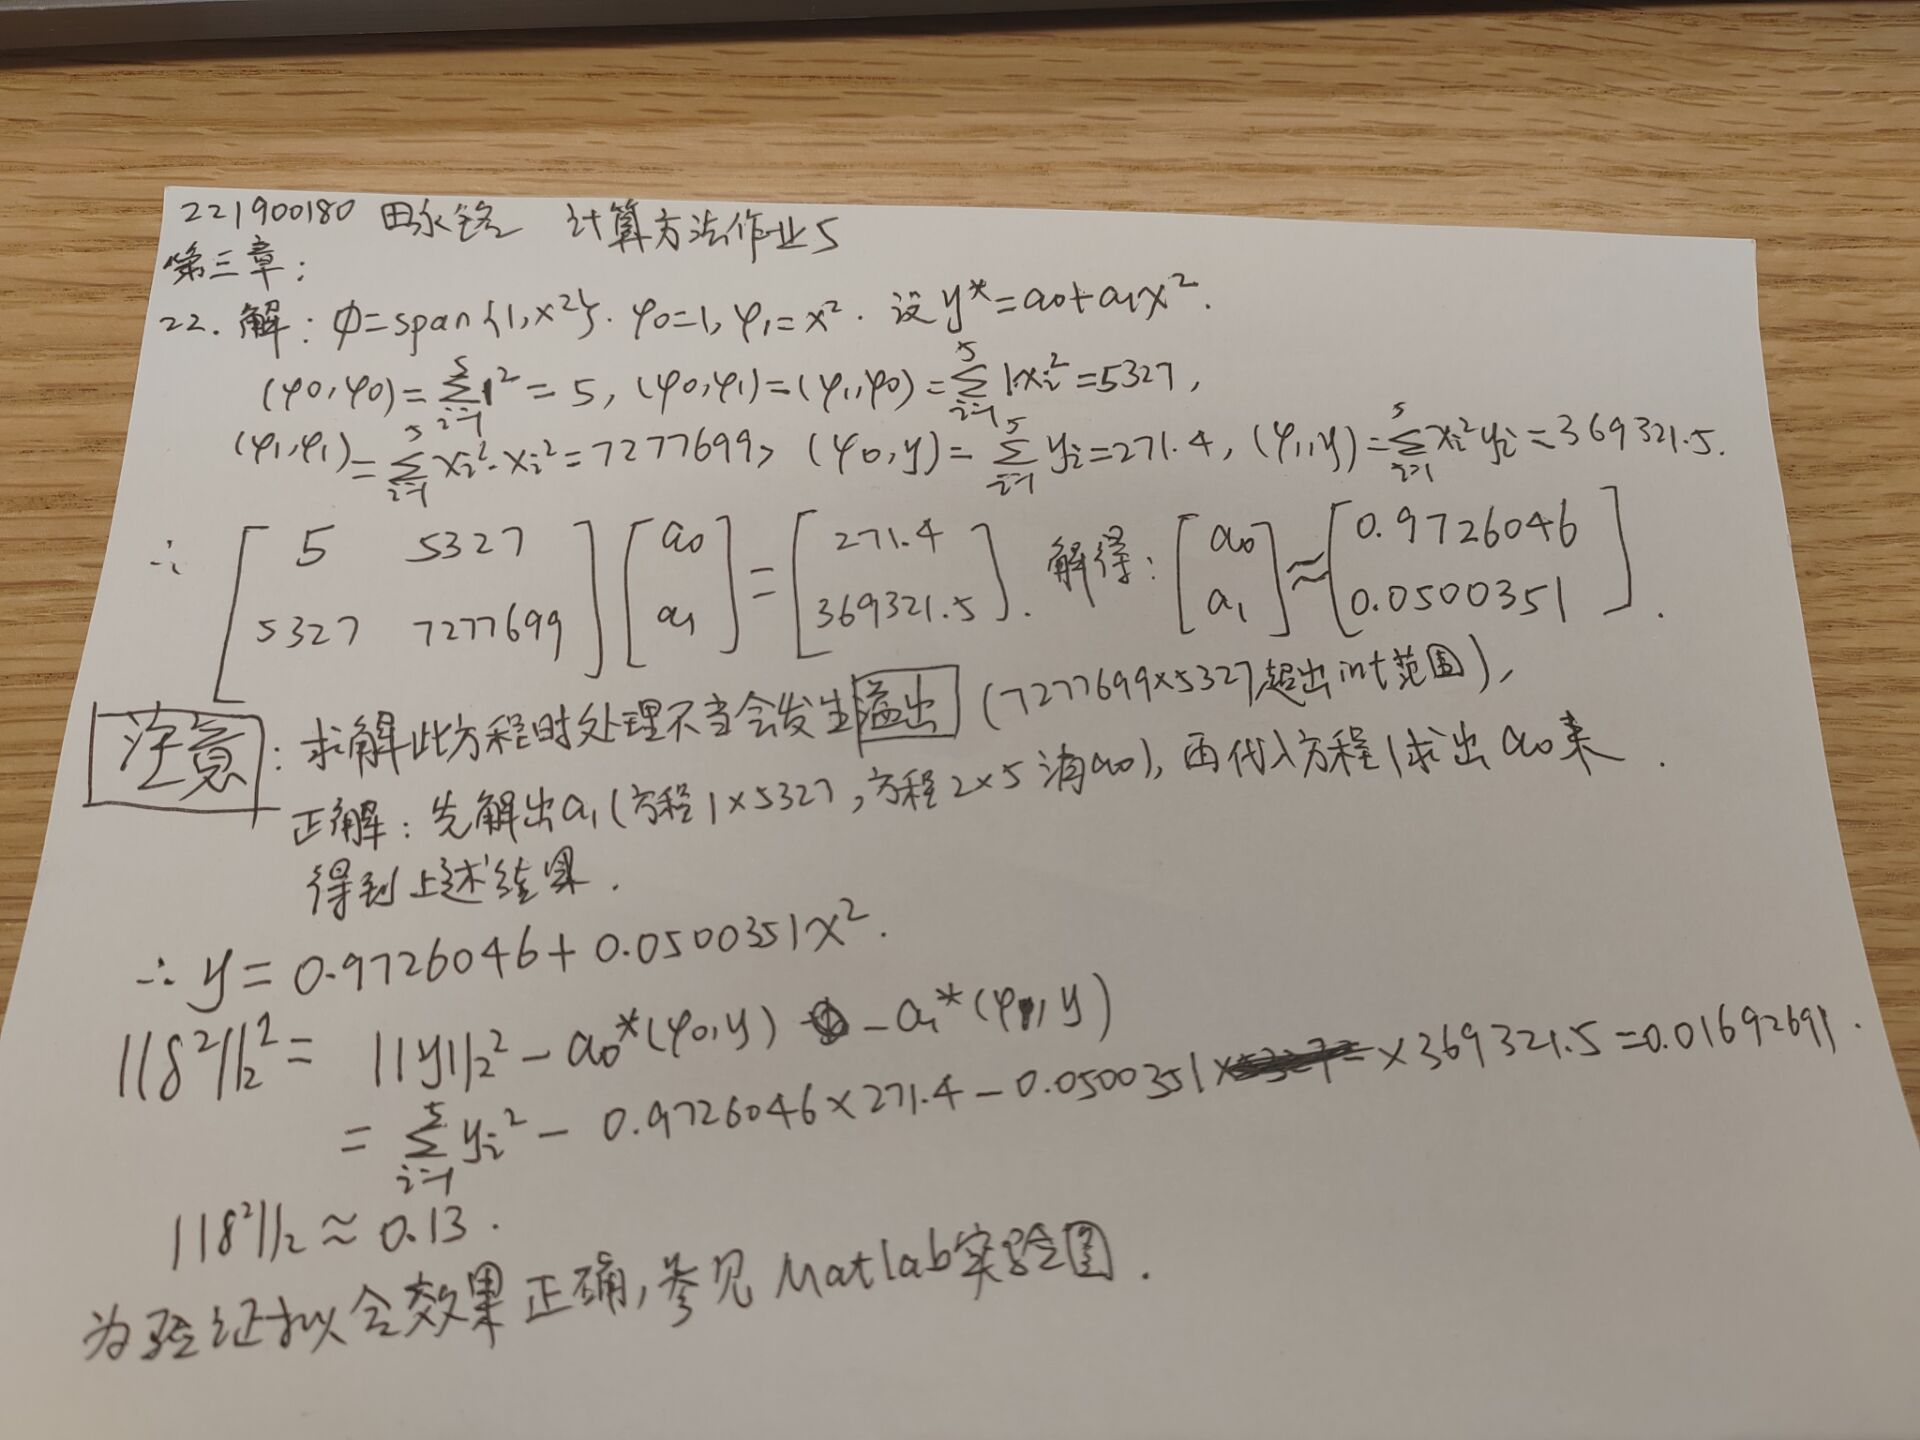 221900180 田永铭 计算方法作业5
第三章:
22. 解: Φ=span{1,x²}. φ0=1, φ1=x². 设y*=a0+a1x².
(φ0,φ0)=∑_{i=1}^{5}1²=5, (φ0,φ1)=(φ1,φ0)=∑_{i=1}^{5}1·xi²=5327,
(φ1,φ1)=∑_{i=1}^{5}xi²·xi²=7277699, (φ0,y)=∑_{i=1}^{5}yi=271.4, (φ1,y)=∑_{i=1}^{5}xi²yi=369321.5.
∴ [5 5327; 5327 7277699][a0; a1]=[271.4; 369321.5]. 解得: [a0; a1]≈[0.9726046; 0.0500351].
注意: 求解此方程时处理不当会发生溢出 (7277699×5327超出int范围),
正解: 先解出a1(方程1×5327,方程2×5消a0), 再代入方程1求出a0来.
得到上述结果.
∴ y=0.9726046+0.0500351x².
||δ²||₂²= ||y||₂²-a0*(φ0,y) -a1*(φ1,y)
=∑_{i=1}^{5}yi²-0.9726046×271.4-0.0500351×369321.5=0.01692691.
||δ²||₂≈0.13.
为验证拟合效果正确,参见Matlab实验图.